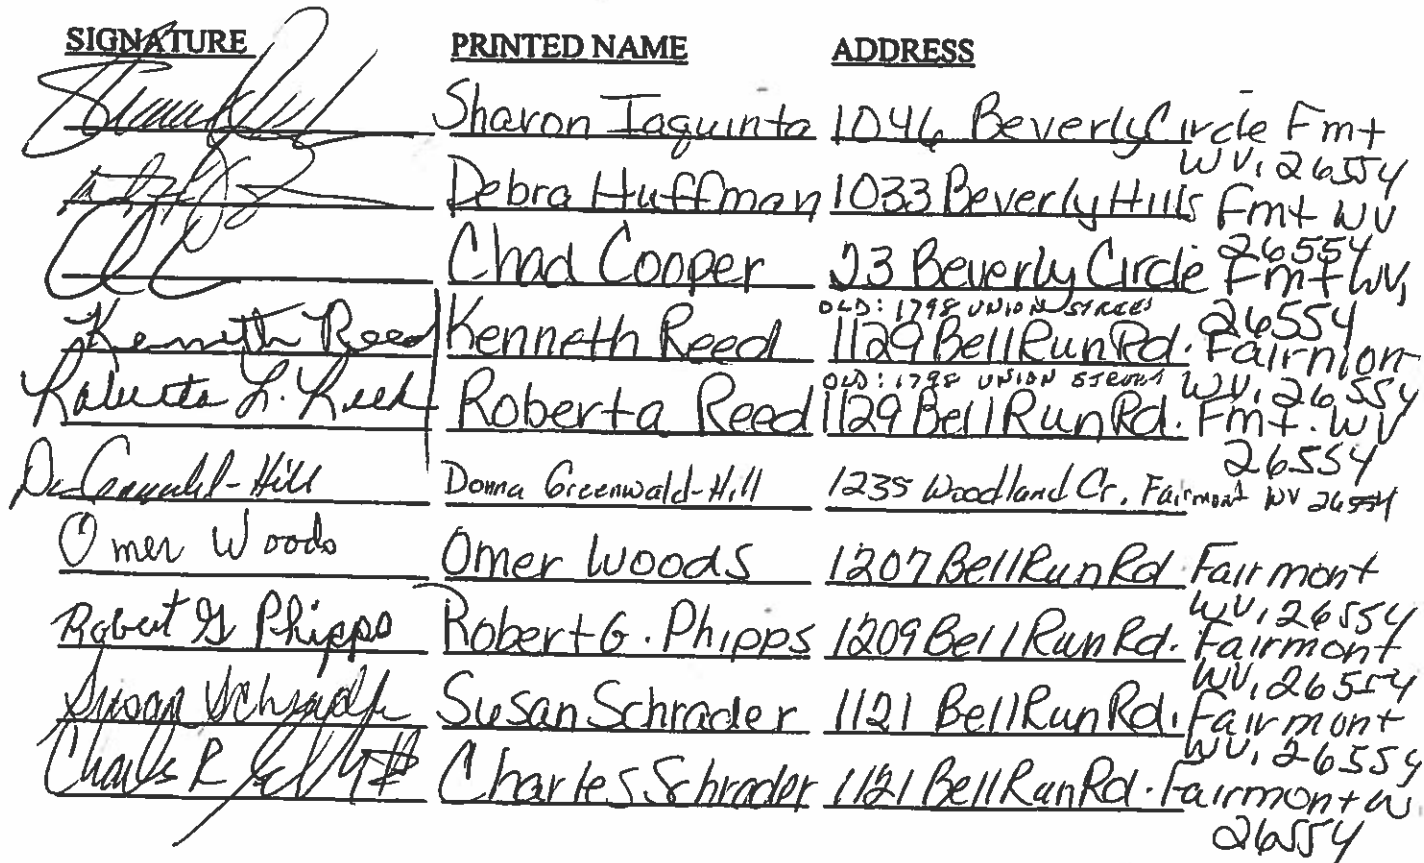 SIGNATURE PRINTED NAME ADDRESS
Sharon Iaquinta 1046 Beverly Circle Fmt
WV, 26554
Debra Huffman 1033 Beverly Hills Fmt WV
26554
Chad Cooper 23 Beverly Circle Fmt WV,
26554
OLD: 1798 UNION STREET
Kenneth Reed Kenneth Reed 1129 Bell Run Rd. Fairmon
WV, 26554
OLD: 1798 UNION STREET
Roberta L. Reed Roberta Reed 1129 Bell Run Rd. Fmt. WV
26554
Greenwald-Hill Donna Greenwald-Hill 1235 Woodland Cr. Fairmont WV 26554
Omer Woods Omer Woods 1207 Bell Run Rd Fairmont
WV, 26554
Robert G Phipps Robert G. Phipps 1209 Bell Run Rd. Fairmont
WV, 26554
Susan Schrader Susan Schrader 1121 Bell Run Rd. Fairmont
WV, 26554
Charles R Charles Schrader 1121 Bell Run Rd. Fairmont W.
26554